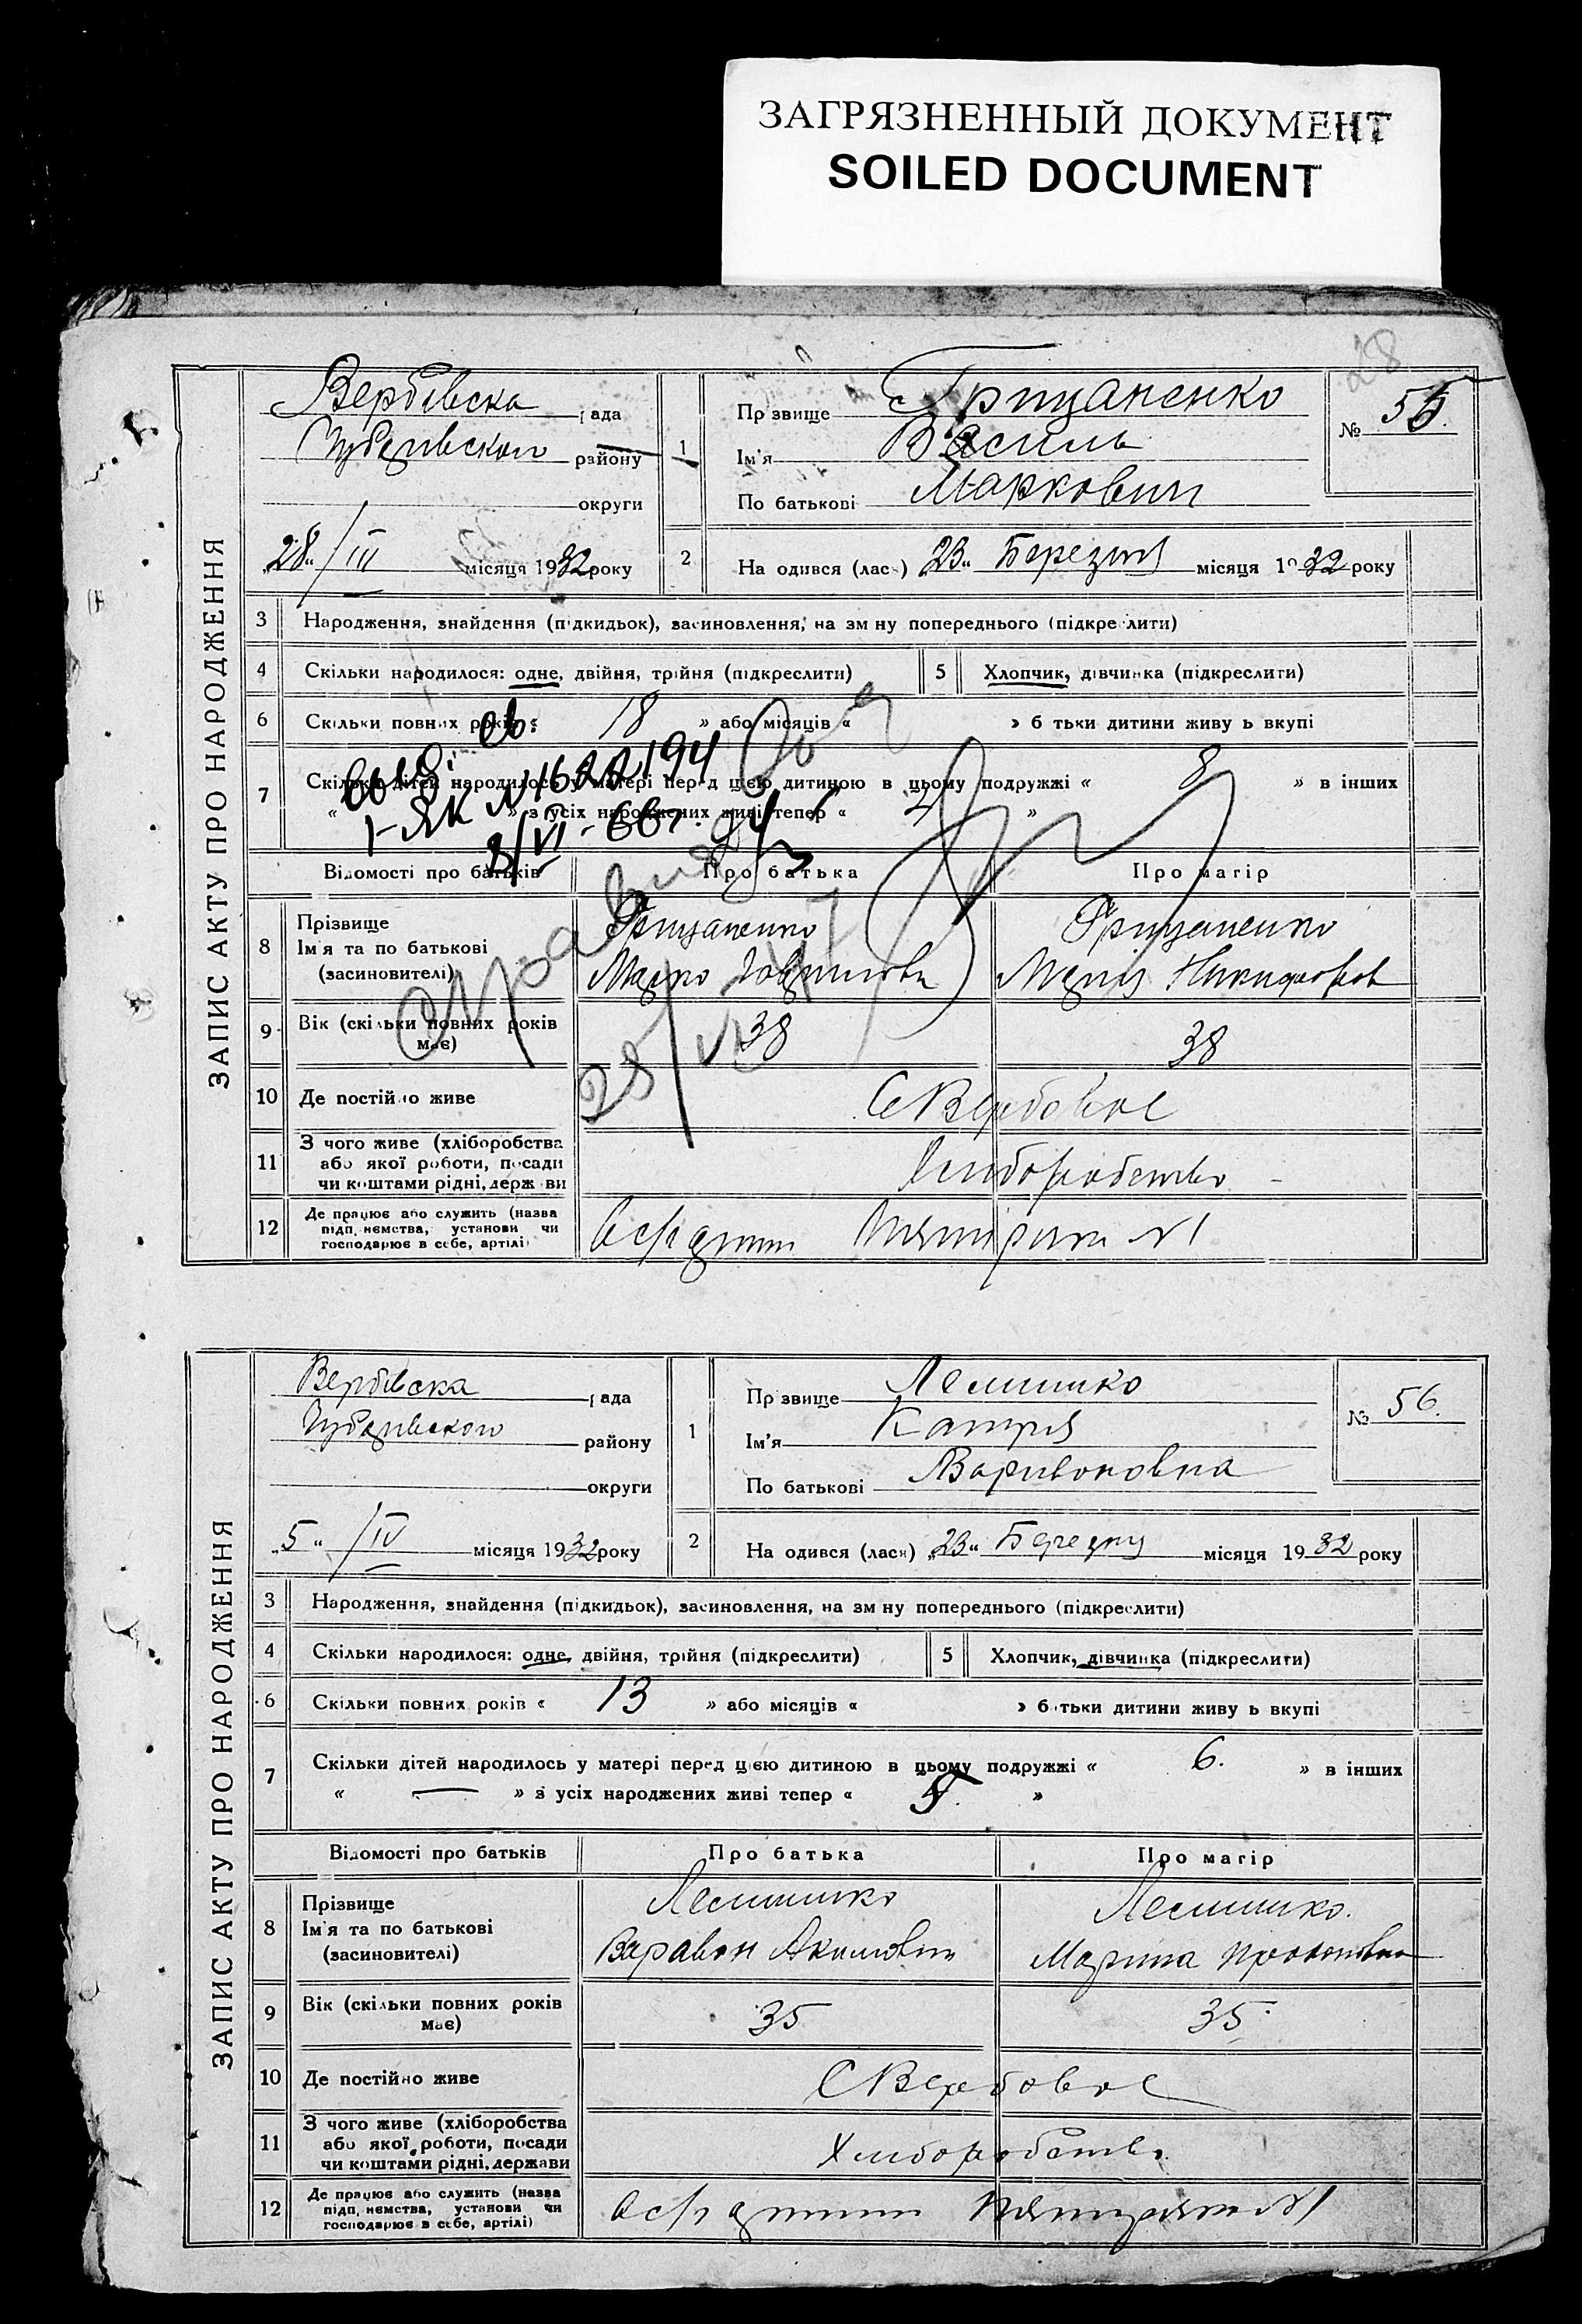 ЗАГРЯЗНЕННЫЙ ДОКУМЕНТ
SOILED DOCUMENT
28
ЗАПИС АКТУ ПРО НАРОДЖЕННЯ
Вербівська рада
Чубарівского району
округи
"28" / III місяця 1932 року
1
Прізвище Грицаненко
Ім'я Василь
По батькові Маркович
№ 55.
2 На одився (лась) "23" Березня місяця 1932 року
3 Народження, знайдення (підкидьок), засиновлення, на зміну попереднього (підкреслити)
4 Скільки народилося: одне, двійня, трійня (підкреслити)
5 Хлопчик, дівчинка (підкреслити)
6 Скільки повних років « 18 » або місяців « » батьки дитини живуть вкупі
7 Скільки дітей народилось у матері перед цією дитиною в цьому подружжі « 8 » в інших
« » з усіх народжених живі тепер « »
св.
I-ЯК №
3/VI-66г.
Відомості про батьків Про батька Про матір
8 Прізвище
Ім'я та по батькові
(засиновителі)
Грицаненко
Марко
Грицаненко
Марія Никифоров
9 Вік (скільки повних років має) 38 38
10 Де постійно живе С Вербове
11 З чого живе (хліборобства або якої роботи, посади чи коштами рідні, держави Хліборобство
12 Де працює або служить (назва підприємства, установи чи господарює в себе, артілі) №1
ЗАПИС АКТУ ПРО НАРОДЖЕННЯ
Вербівська рада
Чубарівского району
округи
"5" / IV місяця 1932 року
1
Прізвище Лемишко
Ім'я Катря
По батькові Варивоновна
№ 56.
2 На одився (лась) "23" Березня місяця 1932 року
3 Народження, знайдення (підкидьок), засиновлення, на зміну попереднього (підкреслити)
4 Скільки народилося: одне, двійня, трійня (підкреслити)
5 Хлопчик, дівчинка (підкреслити)
6 Скільки повних років « 13 » або місяців « » батьки дитини живуть вкупі
7 Скільки дітей народилось у матері перед цією дитиною в цьому подружжі « 6. » в інших
« — » з усіх народжених живі тепер « 5. »
Відомості про батьків Про батька Про матір
8 Прізвище
Ім'я та по батькові
(засиновителі)
Лемишко
Варавон Акимович
Лемишко.
Марина Прокоповна
9 Вік (скільки повних років має) 35 35
10 Де постійно живе С Вербове
11 З чого живе (хліборобства або якої роботи, посади чи коштами рідні, держави Хліборобство
12 Де працює або служить (назва підприємства, установи чи господарює в себе, артілі) №1